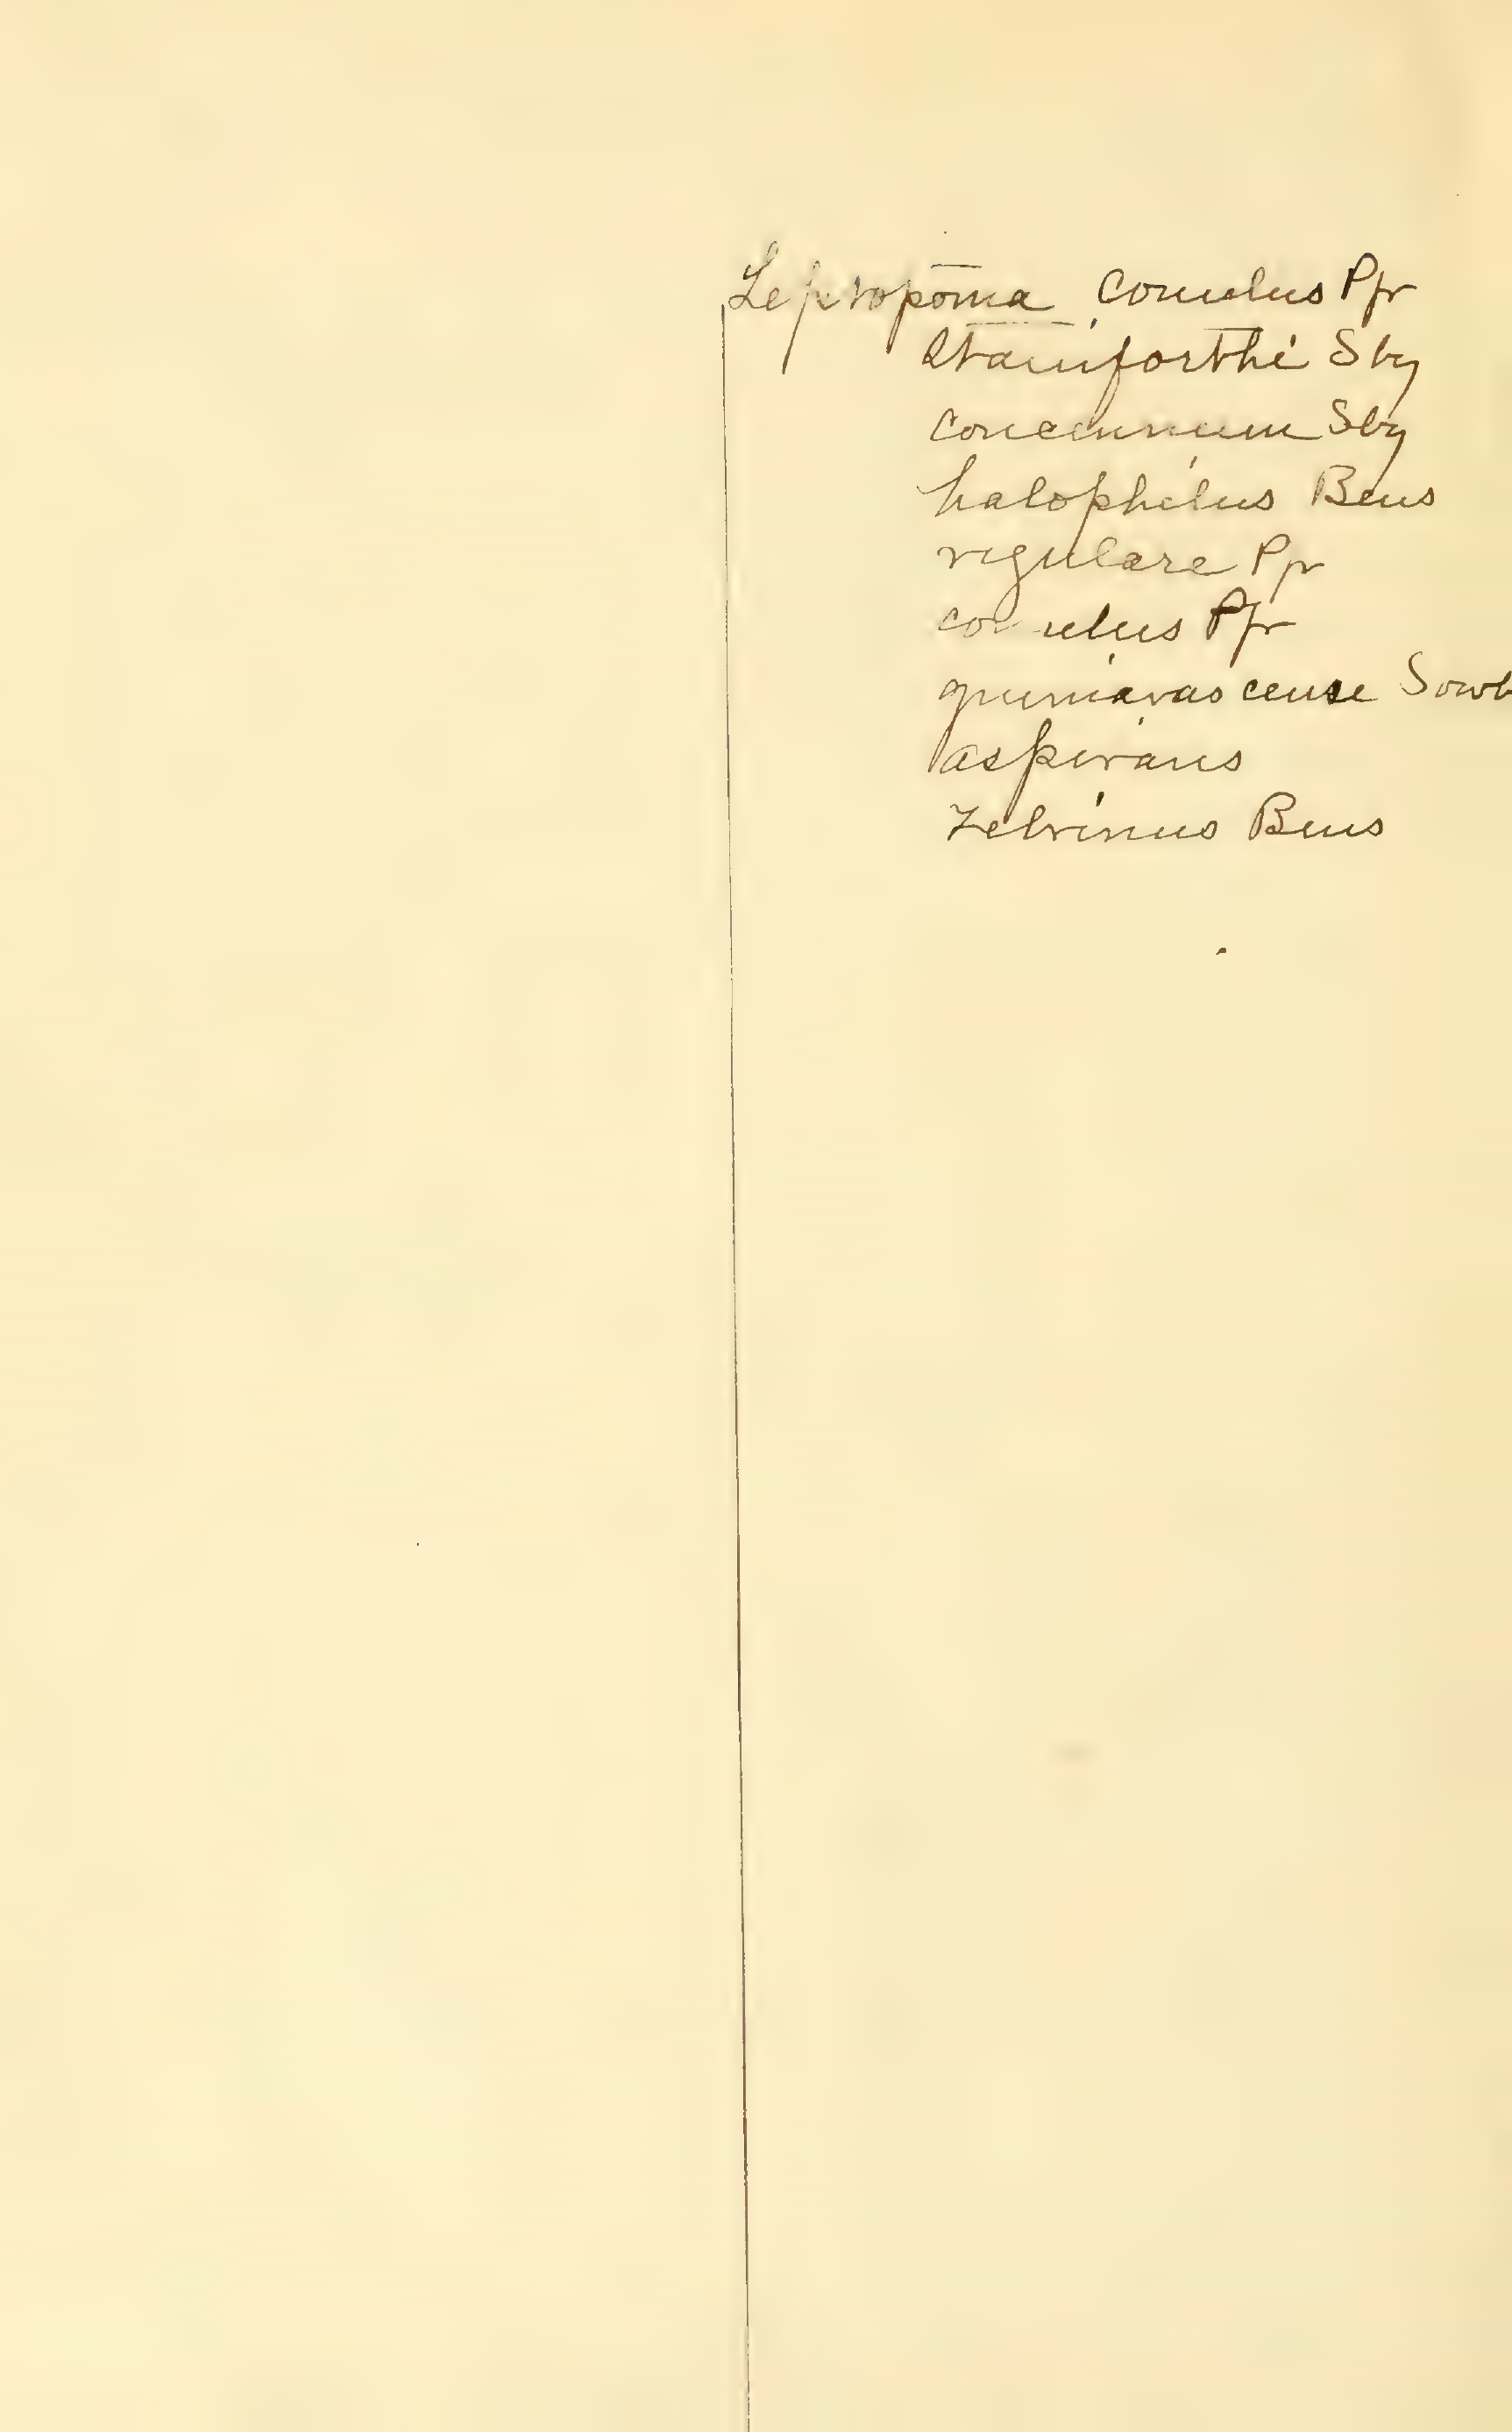 Leptopoma conulus Pfr
Stainforthi Sby
concinnum Sby
halophilus Bens
regulare Pfr
conulus Pfr
Sowb
aspirans
Zebrinus Bens